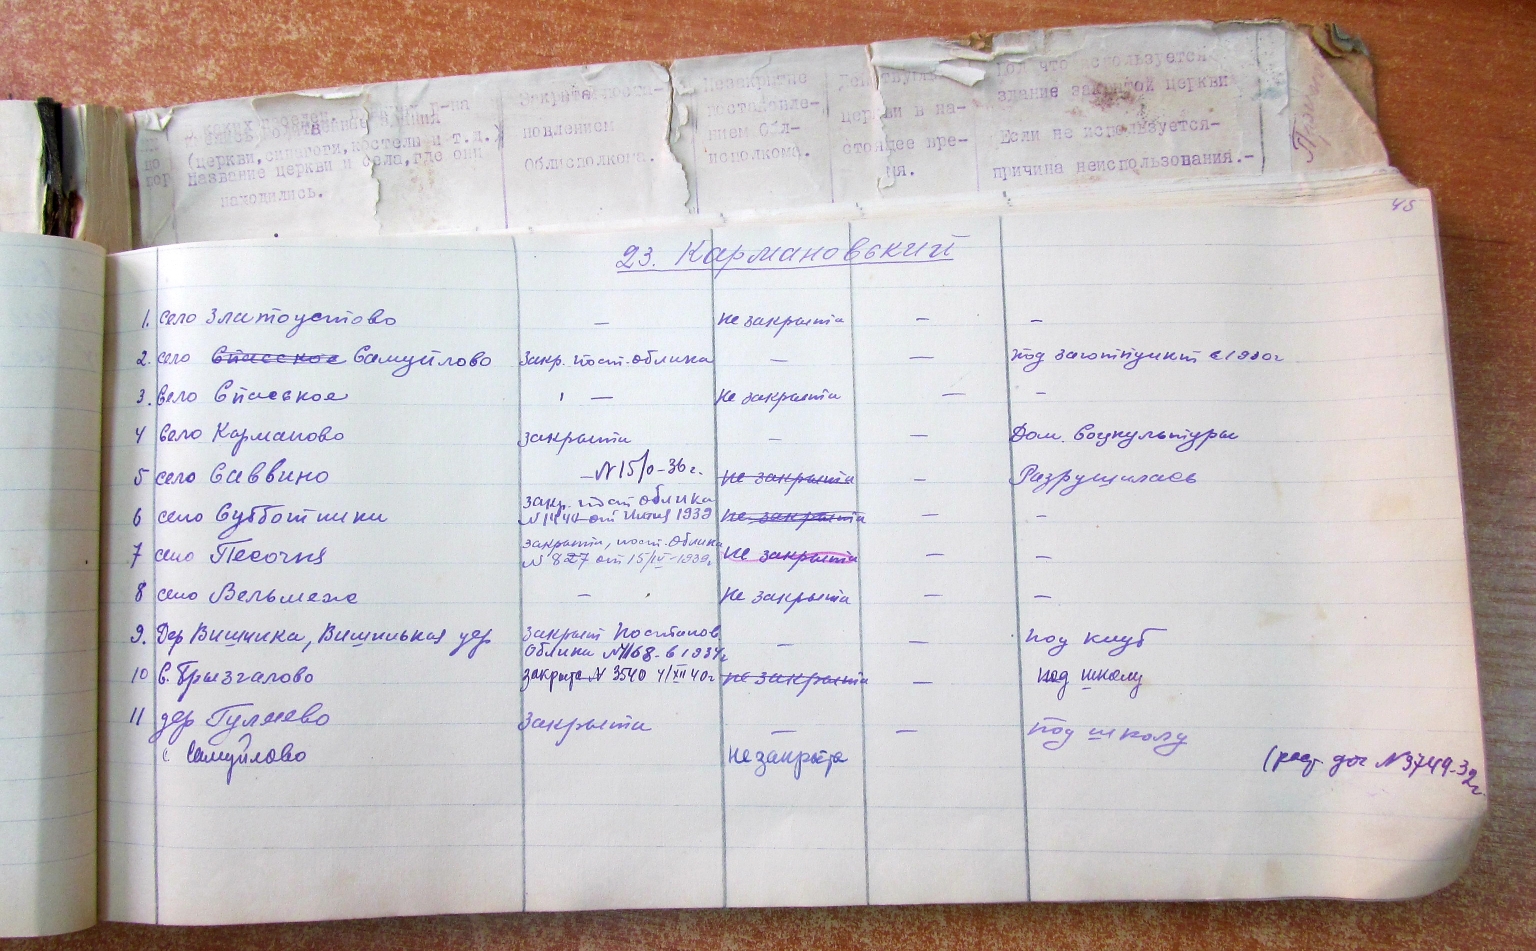 (церкви, синагоги, костелы и т.д.)
Название церкви и села, где они
находились.
Закрыта поста-
новлением
Облисполкома.
Незакрытые
постановле-
нием Обл-
исполкома.
церкви в на-
стоящее вре-
мя.
Под что используется
здание закрытой церкви
Если не используется-
причина неиспользования.-
45
23. Кармановський
1. село Златоустово — не закрыта — —
2. село Спасское Самуйлово закр. пост. облика — — под заготпункт с 1930г
3. село Спаськое — не закрыта — —
4 село Карманово закрыта — — Дом. Соцкультуры
5 село Саввино — N 15/0-36 г. не закрыта — Разрушилась
6 село Субботники закр. пост облика N 1444 от Июня 1939 не закрыта — —
7 село Песочня закрыта, пост. Облика N 827 от 15/IV-1939г не закрыта — —
8 село Вельмеже — не закрыта — —
9. Дер Вишника, Вишинькая цер закрыт Постанов Облика N 1168-6 1934г — — под клуб
10 с. Брызгалово закрыта N 3540 4/XII 40г не закрыта — под школу
11 дер Гуляево закрыта — — под школу
с. Самуйлово не закрыта
N 3749-32г.